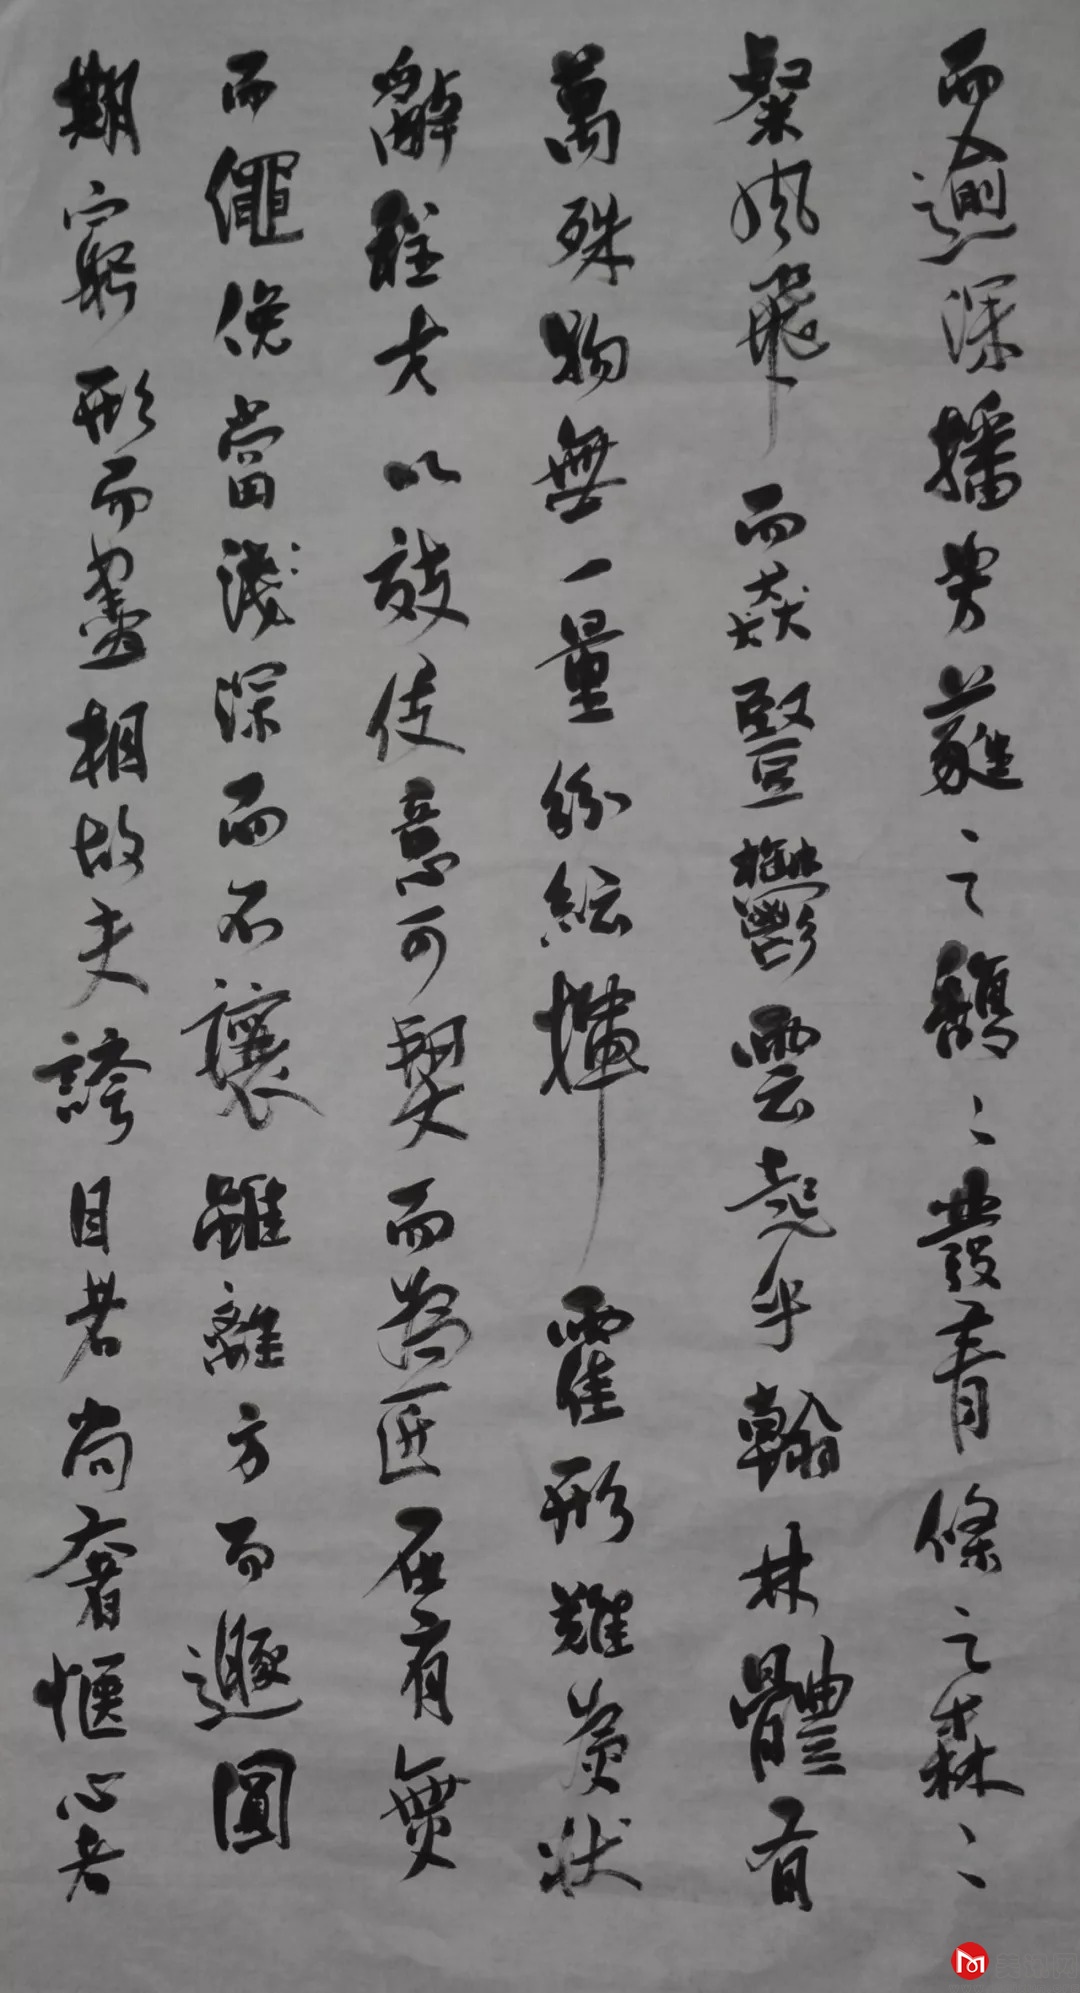 而逾深播芳蕤之馥〻發青條之森〻
粲風飛而猋豎鬱雲起乎翰林體有
萬殊物無一量紛紜揮霍形難為狀
辭程才以效伎意司契而為匠在有無
而僶俛當淺深而不讓雖離方而遯圓
期窮形而盡相故夫誇目者尚奢愜心者